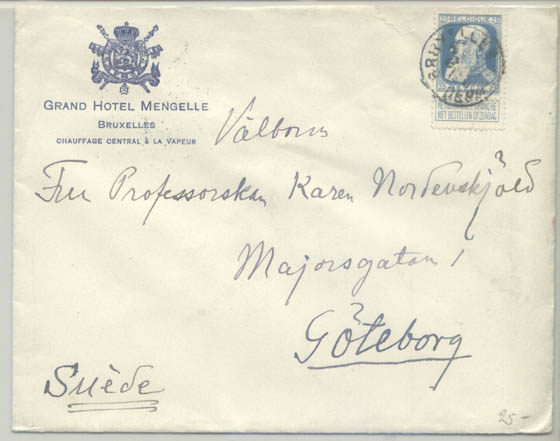 GRAND HOTEL MENGELLE
BRUXELLES
CHAUFFAGE CENTRAL à LA VAPEUR
25 BELGIQUE 25
NE PAS LIVRER LE DIMANCHE
NIET BESTELLEN OP ZONDAG
Välborna
Fru Professorskan Karen Nordenskjöld
Majorsgatan 1
Göteborg
Suède
25-